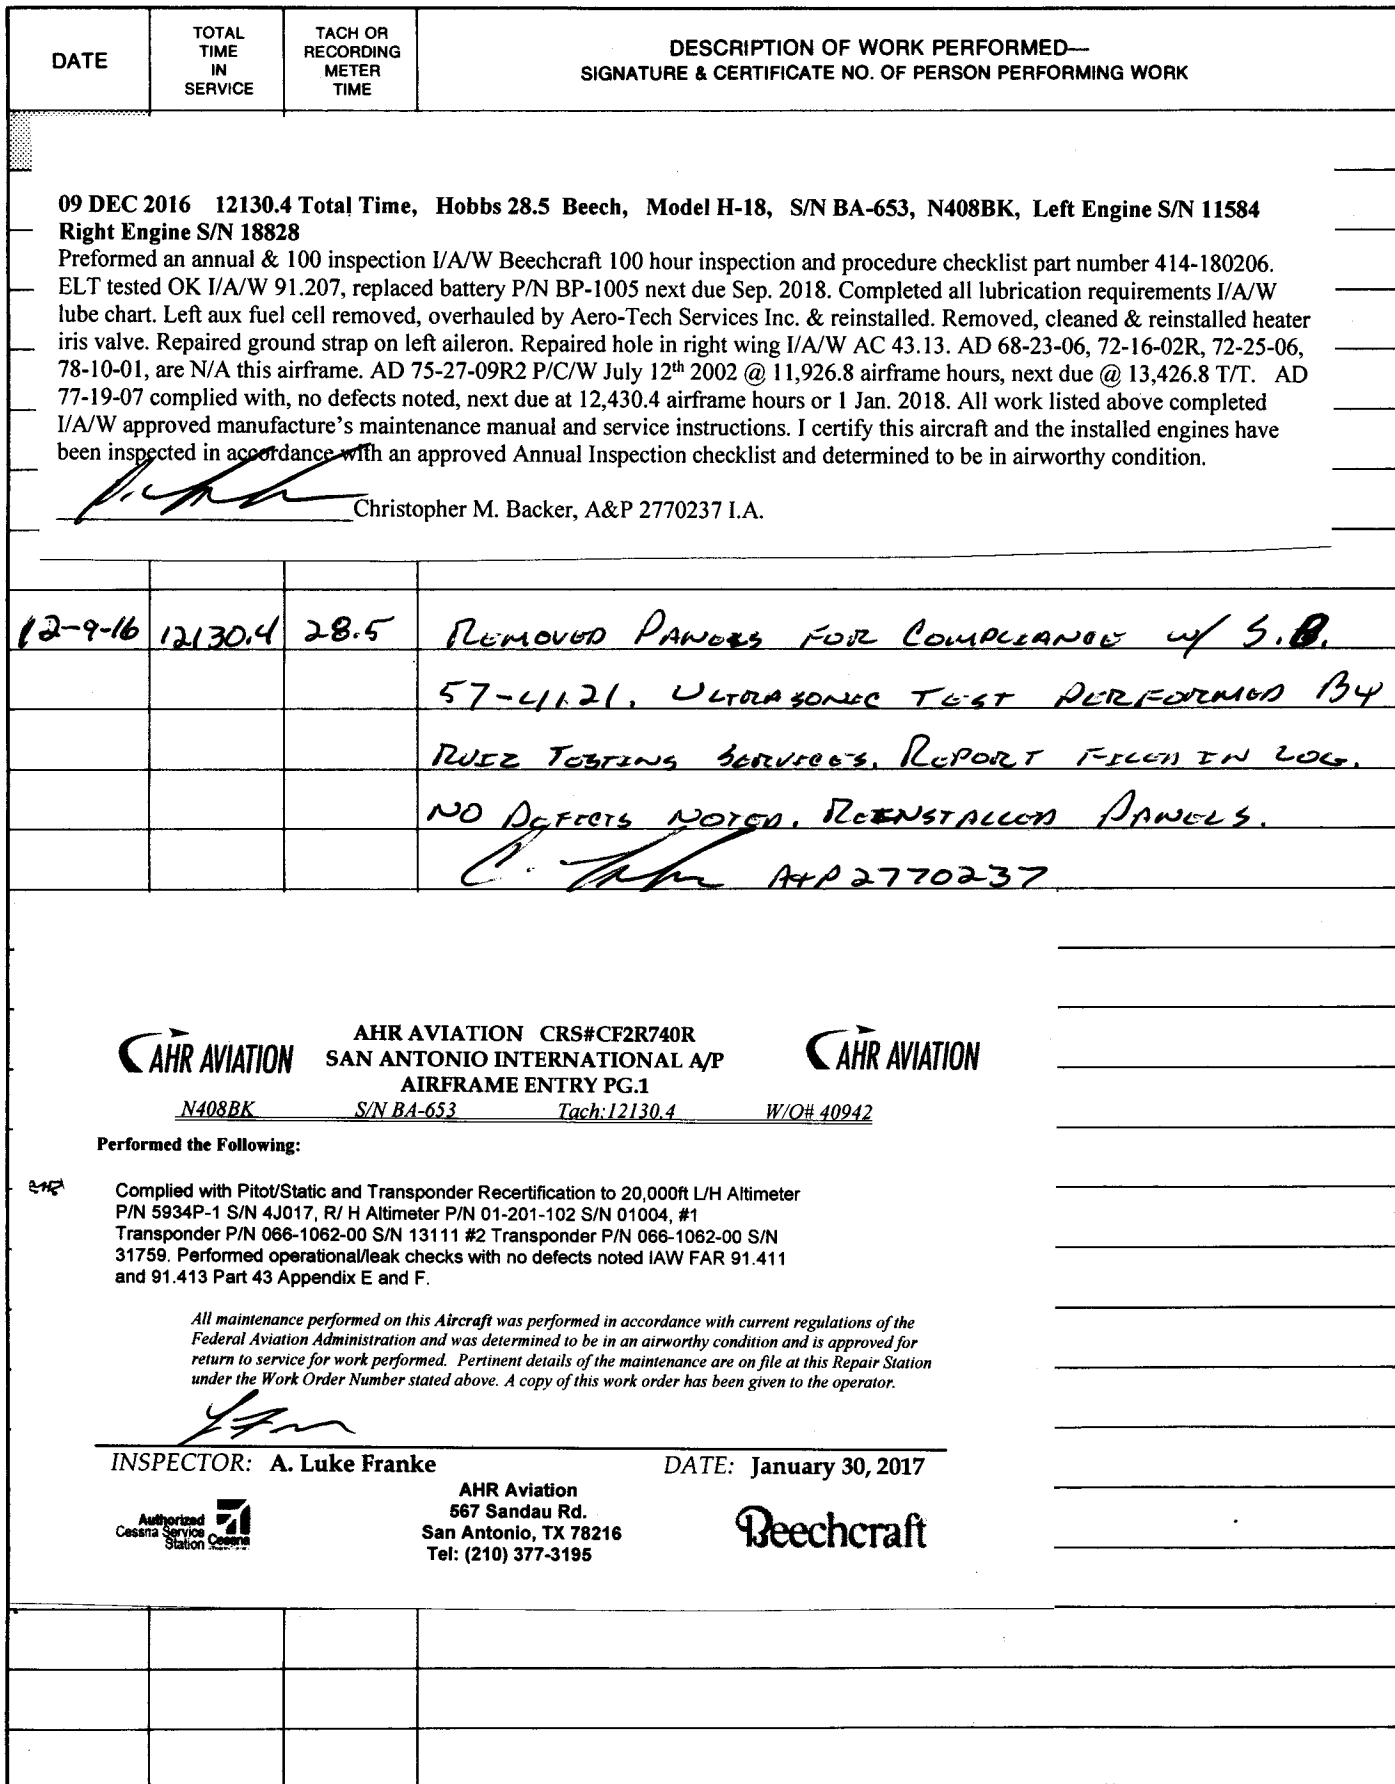 DATE
TOTAL
TIME
IN
SERVICE
TACH OR
RECORDING
METER
TIME
DESCRIPTION OF WORK PERFORMED—
SIGNATURE & CERTIFICATE NO. OF PERSON PERFORMING WORK
09 DEC 2016 12130.4 Total Time, Hobbs 28.5 Beech, Model H-18, S/N BA-653, N408BK, Left Engine S/N 11584
Right Engine S/N 18828
Preformed an annual & 100 inspection I/A/W Beechcraft 100 hour inspection and procedure checklist part number 414-180206.
ELT tested OK I/A/W 91.207, replaced battery P/N BP-1005 next due Sep. 2018. Completed all lubrication requirements I/A/W
lube chart. Left aux fuel cell removed, overhauled by Aero-Tech Services Inc. & reinstalled. Removed, cleaned & reinstalled heater
iris valve. Repaired ground strap on left aileron. Repaired hole in right wing I/A/W AC 43.13. AD 68-23-06, 72-16-02R, 72-25-06,
78-10-01, are N/A this airframe. AD 75-27-09R2 P/C/W July 12th 2002 @ 11,926.8 airframe hours, next due @ 13,426.8 T/T. AD
77-19-07 complied with, no defects noted, next due at 12,430.4 airframe hours or 1 Jan. 2018. All work listed above completed
I/A/W approved manufacture's maintenance manual and service instructions. I certify this aircraft and the installed engines have
been inspected in accordance with an approved Annual Inspection checklist and determined to be in airworthy condition.
Christopher M. Backer, A&P 2770237 I.A.
12-9-16 12130.4 28.5 REMOVED PANELS FOR COMPLIANCE W/ S.B.
57-4121. ULTRASONIC TEST PERFORMED BY
RUIZ TESTING SERVICES. REPORT FILED IN LOG.
NO DEFECTS NOTED. REINSTALLED PANELS.
A+P 2770237
AHR AVIATION
AHR AVIATION CRS#CF2R740R
SAN ANTONIO INTERNATIONAL A/P
AIRFRAME ENTRY PG.1
AHR AVIATION
N408BK S/N BA-653 Tach:12130.4 W/O# 40942
Performed the Following:
Complied with Pitot/Static and Transponder Recertification to 20,000ft L/H Altimeter
P/N 5934P-1 S/N 4J017, R/ H Altimeter P/N 01-201-102 S/N 01004, #1
Transponder P/N 066-1062-00 S/N 13111 #2 Transponder P/N 066-1062-00 S/N
31759. Performed operational/leak checks with no defects noted IAW FAR 91.411
and 91.413 Part 43 Appendix E and F.
All maintenance performed on this Aircraft was performed in accordance with current regulations of the
Federal Aviation Administration and was determined to be in an airworthy condition and is approved for
return to service for work performed. Pertinent details of the maintenance are on file at this Repair Station
under the Work Order Number stated above. A copy of this work order has been given to the operator.
INSPECTOR: A. Luke Franke DATE: January 30, 2017
Authorized
Cessna Service
Station Cessna
AHR Aviation
567 Sandau Rd.
San Antonio, TX 78216
Tel: (210) 377-3195
Beechcraft